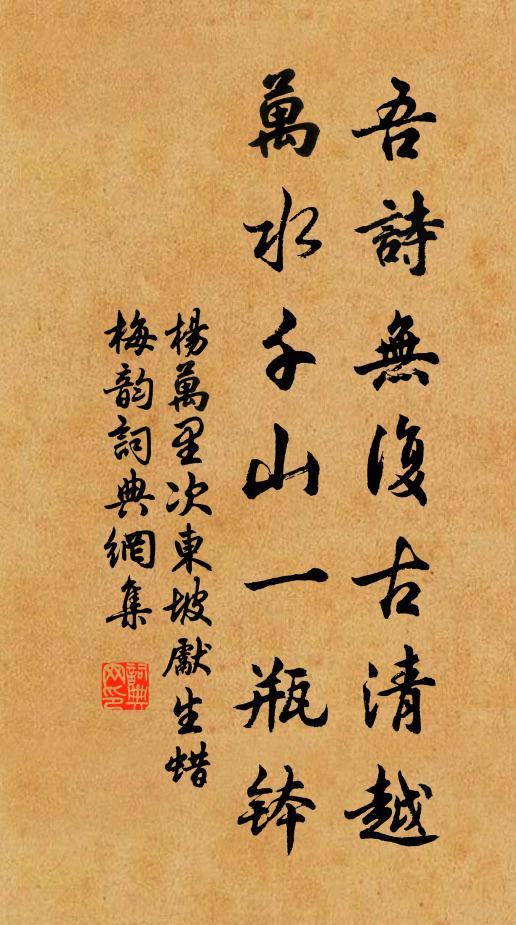 吾詩無復古清越
萬水千山一瓶鉢
楊萬里次東坡獻生蜡
梅韵詞典網集
詞典網印